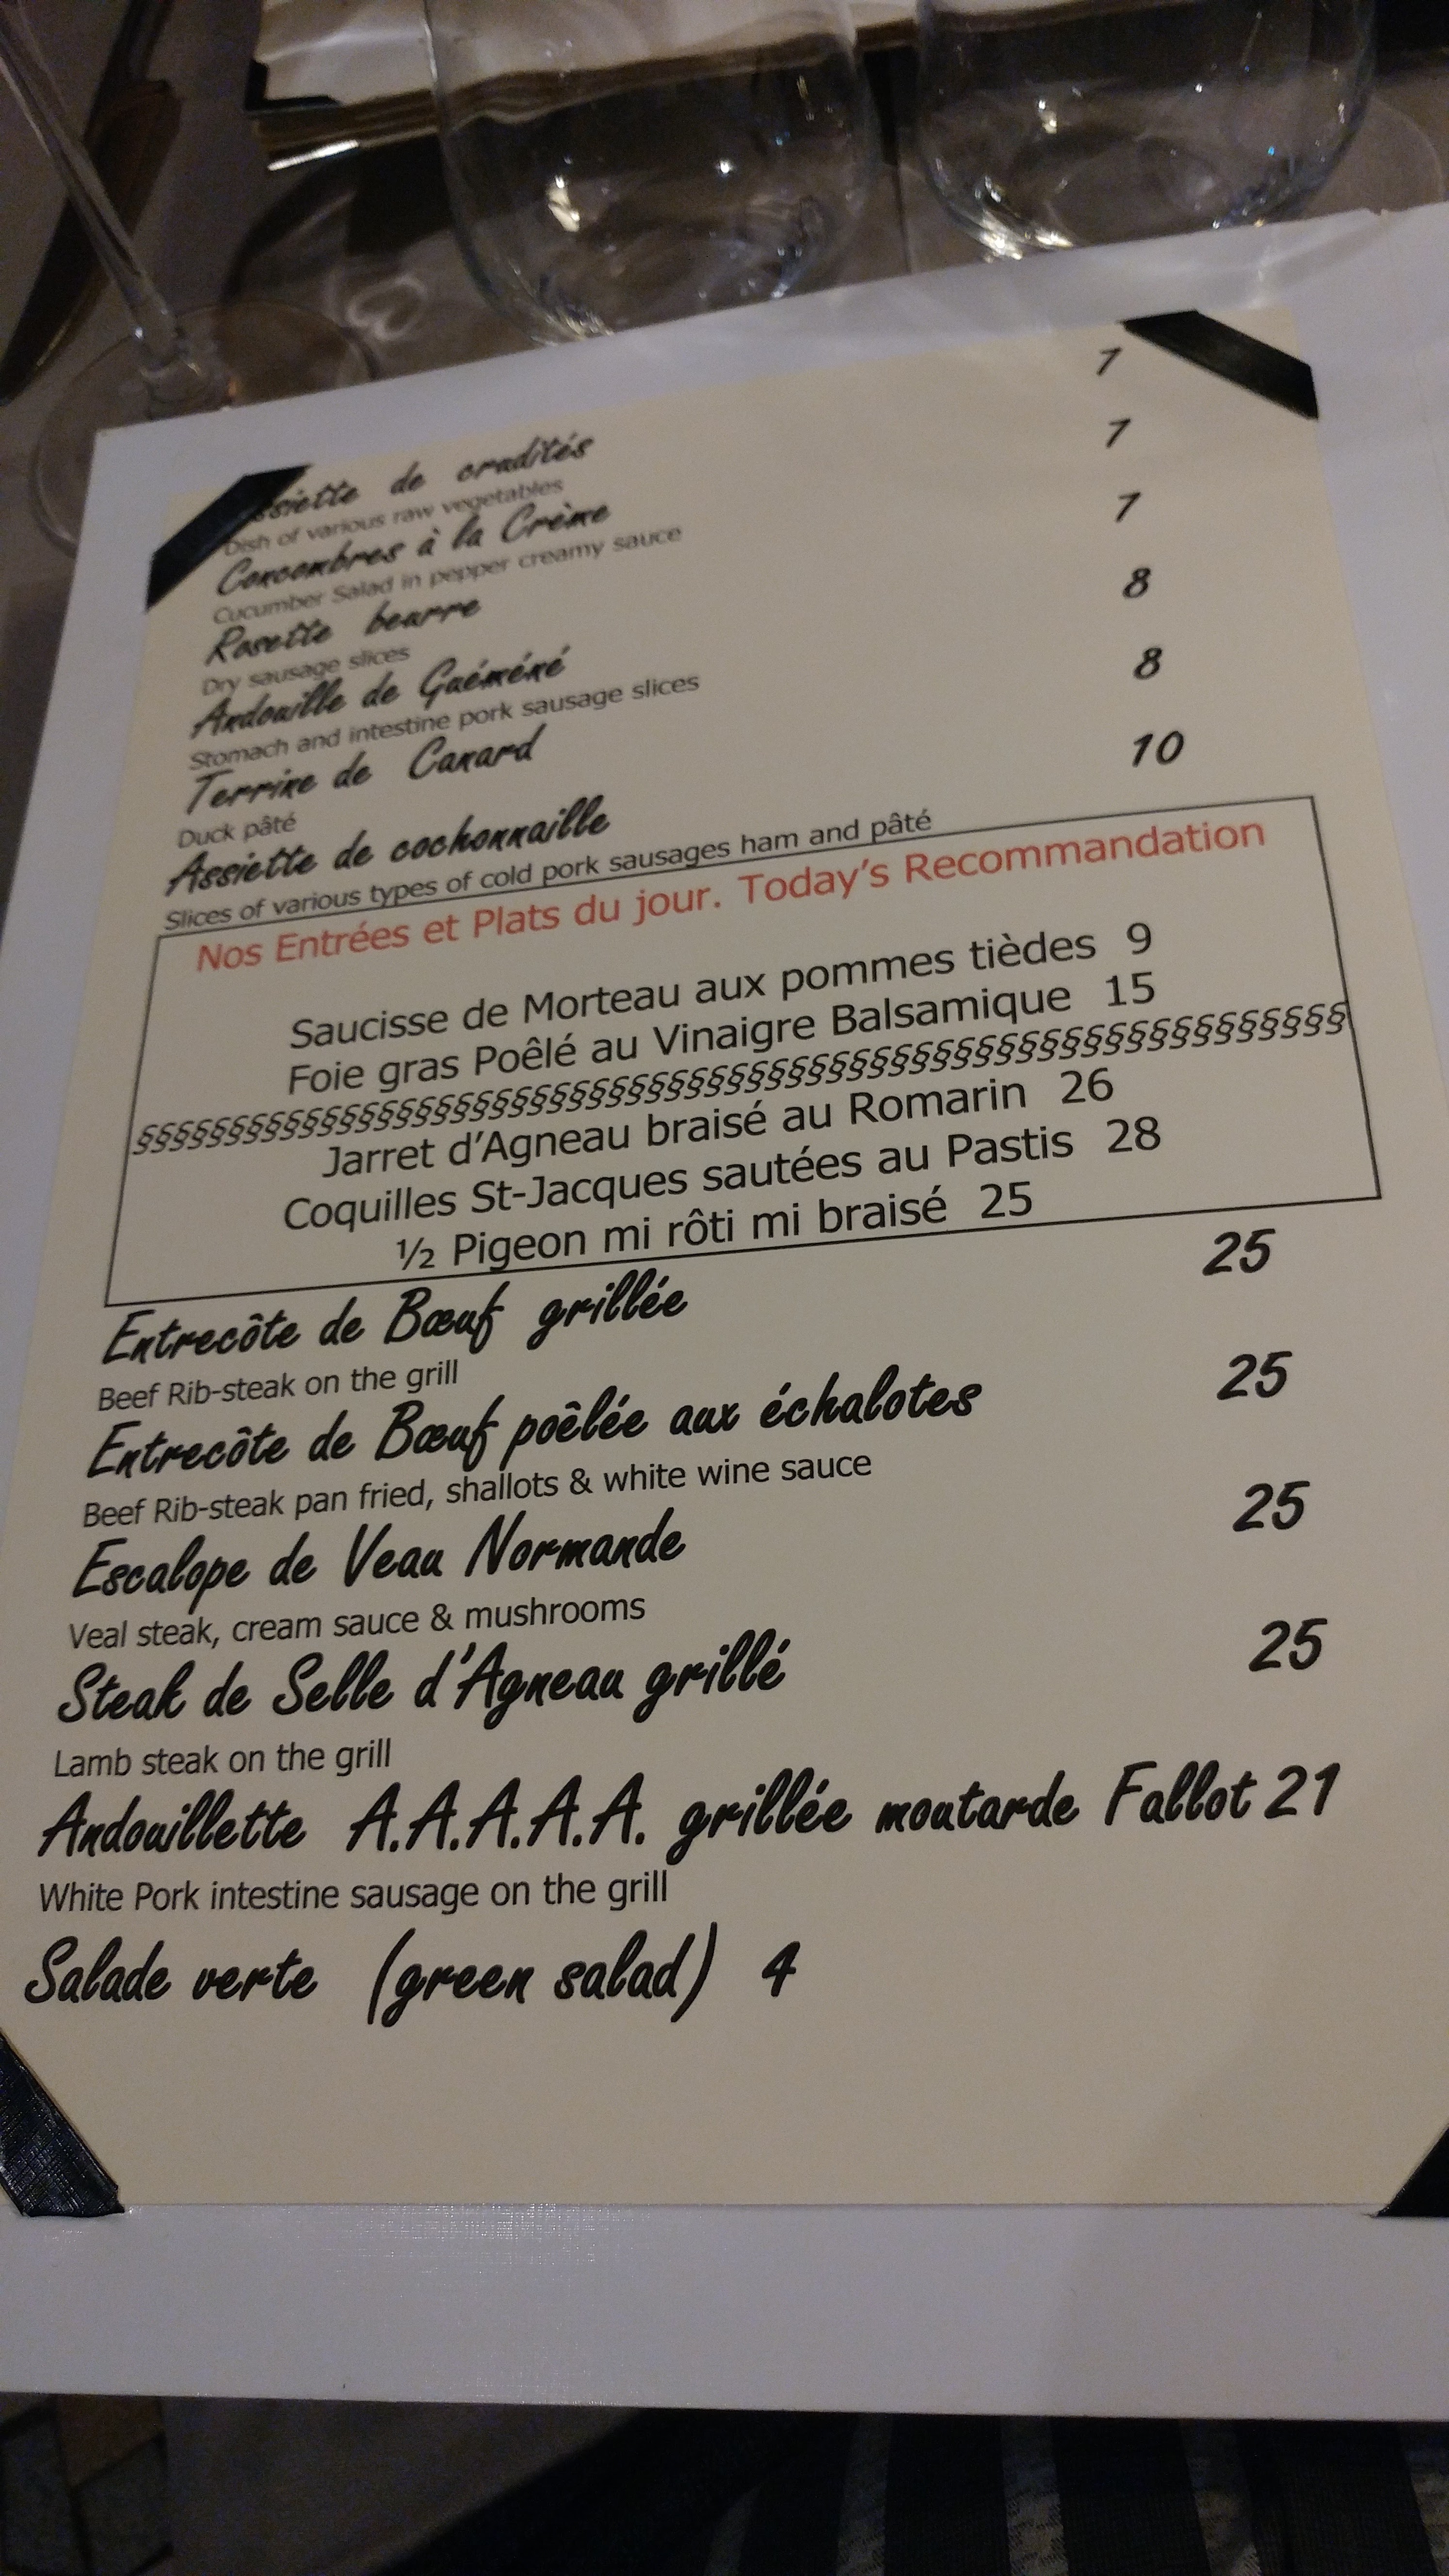 Assiette de crudités 7
Dish of various raw vegetables
Concombres à la Crème 7
Cucumber Salad in pepper creamy sauce
Rosette beurre 7
Dry sausage slices
Andouille de Guéméné 8
Stomach and intestine pork sausage slices
Terrine de Canard 8
Duck pâté
Assiette de cochonnaille 10
Slices of various types of cold pork sausages ham and pâté
Nos Entrées et Plats du jour. Today's Recommandation
Saucisse de Morteau aux pommes tièdes 9
Foie gras Poêlé au Vinaigre Balsamique 15
§§§§§§§§§§§§§§§§§§§§§§§§§§§§§§§§§§§§§§§§§§§§§§§§§§§§§§§§
Jarret d'Agneau braisé au Romarin 26
Coquilles St-Jacques sautées au Pastis 28
½ Pigeon mi rôti mi braisé 25
Entrecôte de Bœuf grillée 25
Beef Rib-steak on the grill
Entrecôte de Bœuf poêlée aux échalotes 25
Beef Rib-steak pan fried, shallots & white wine sauce
Escalope de Veau Normande 25
Veal steak, cream sauce & mushrooms
Steak de Selle d'Agneau grillé 25
Lamb steak on the grill
Andouillette A.A.A.A.A. grillée moutarde Fallot 21
White Pork intestine sausage on the grill
Salade verte (green salad) 4